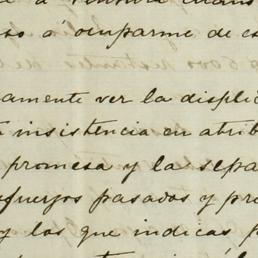 so á ocuparme de es
amente ver la displic
insistencia en atrib
promesa y la sepa
fuerzos pasados y pre
y los que indicas p